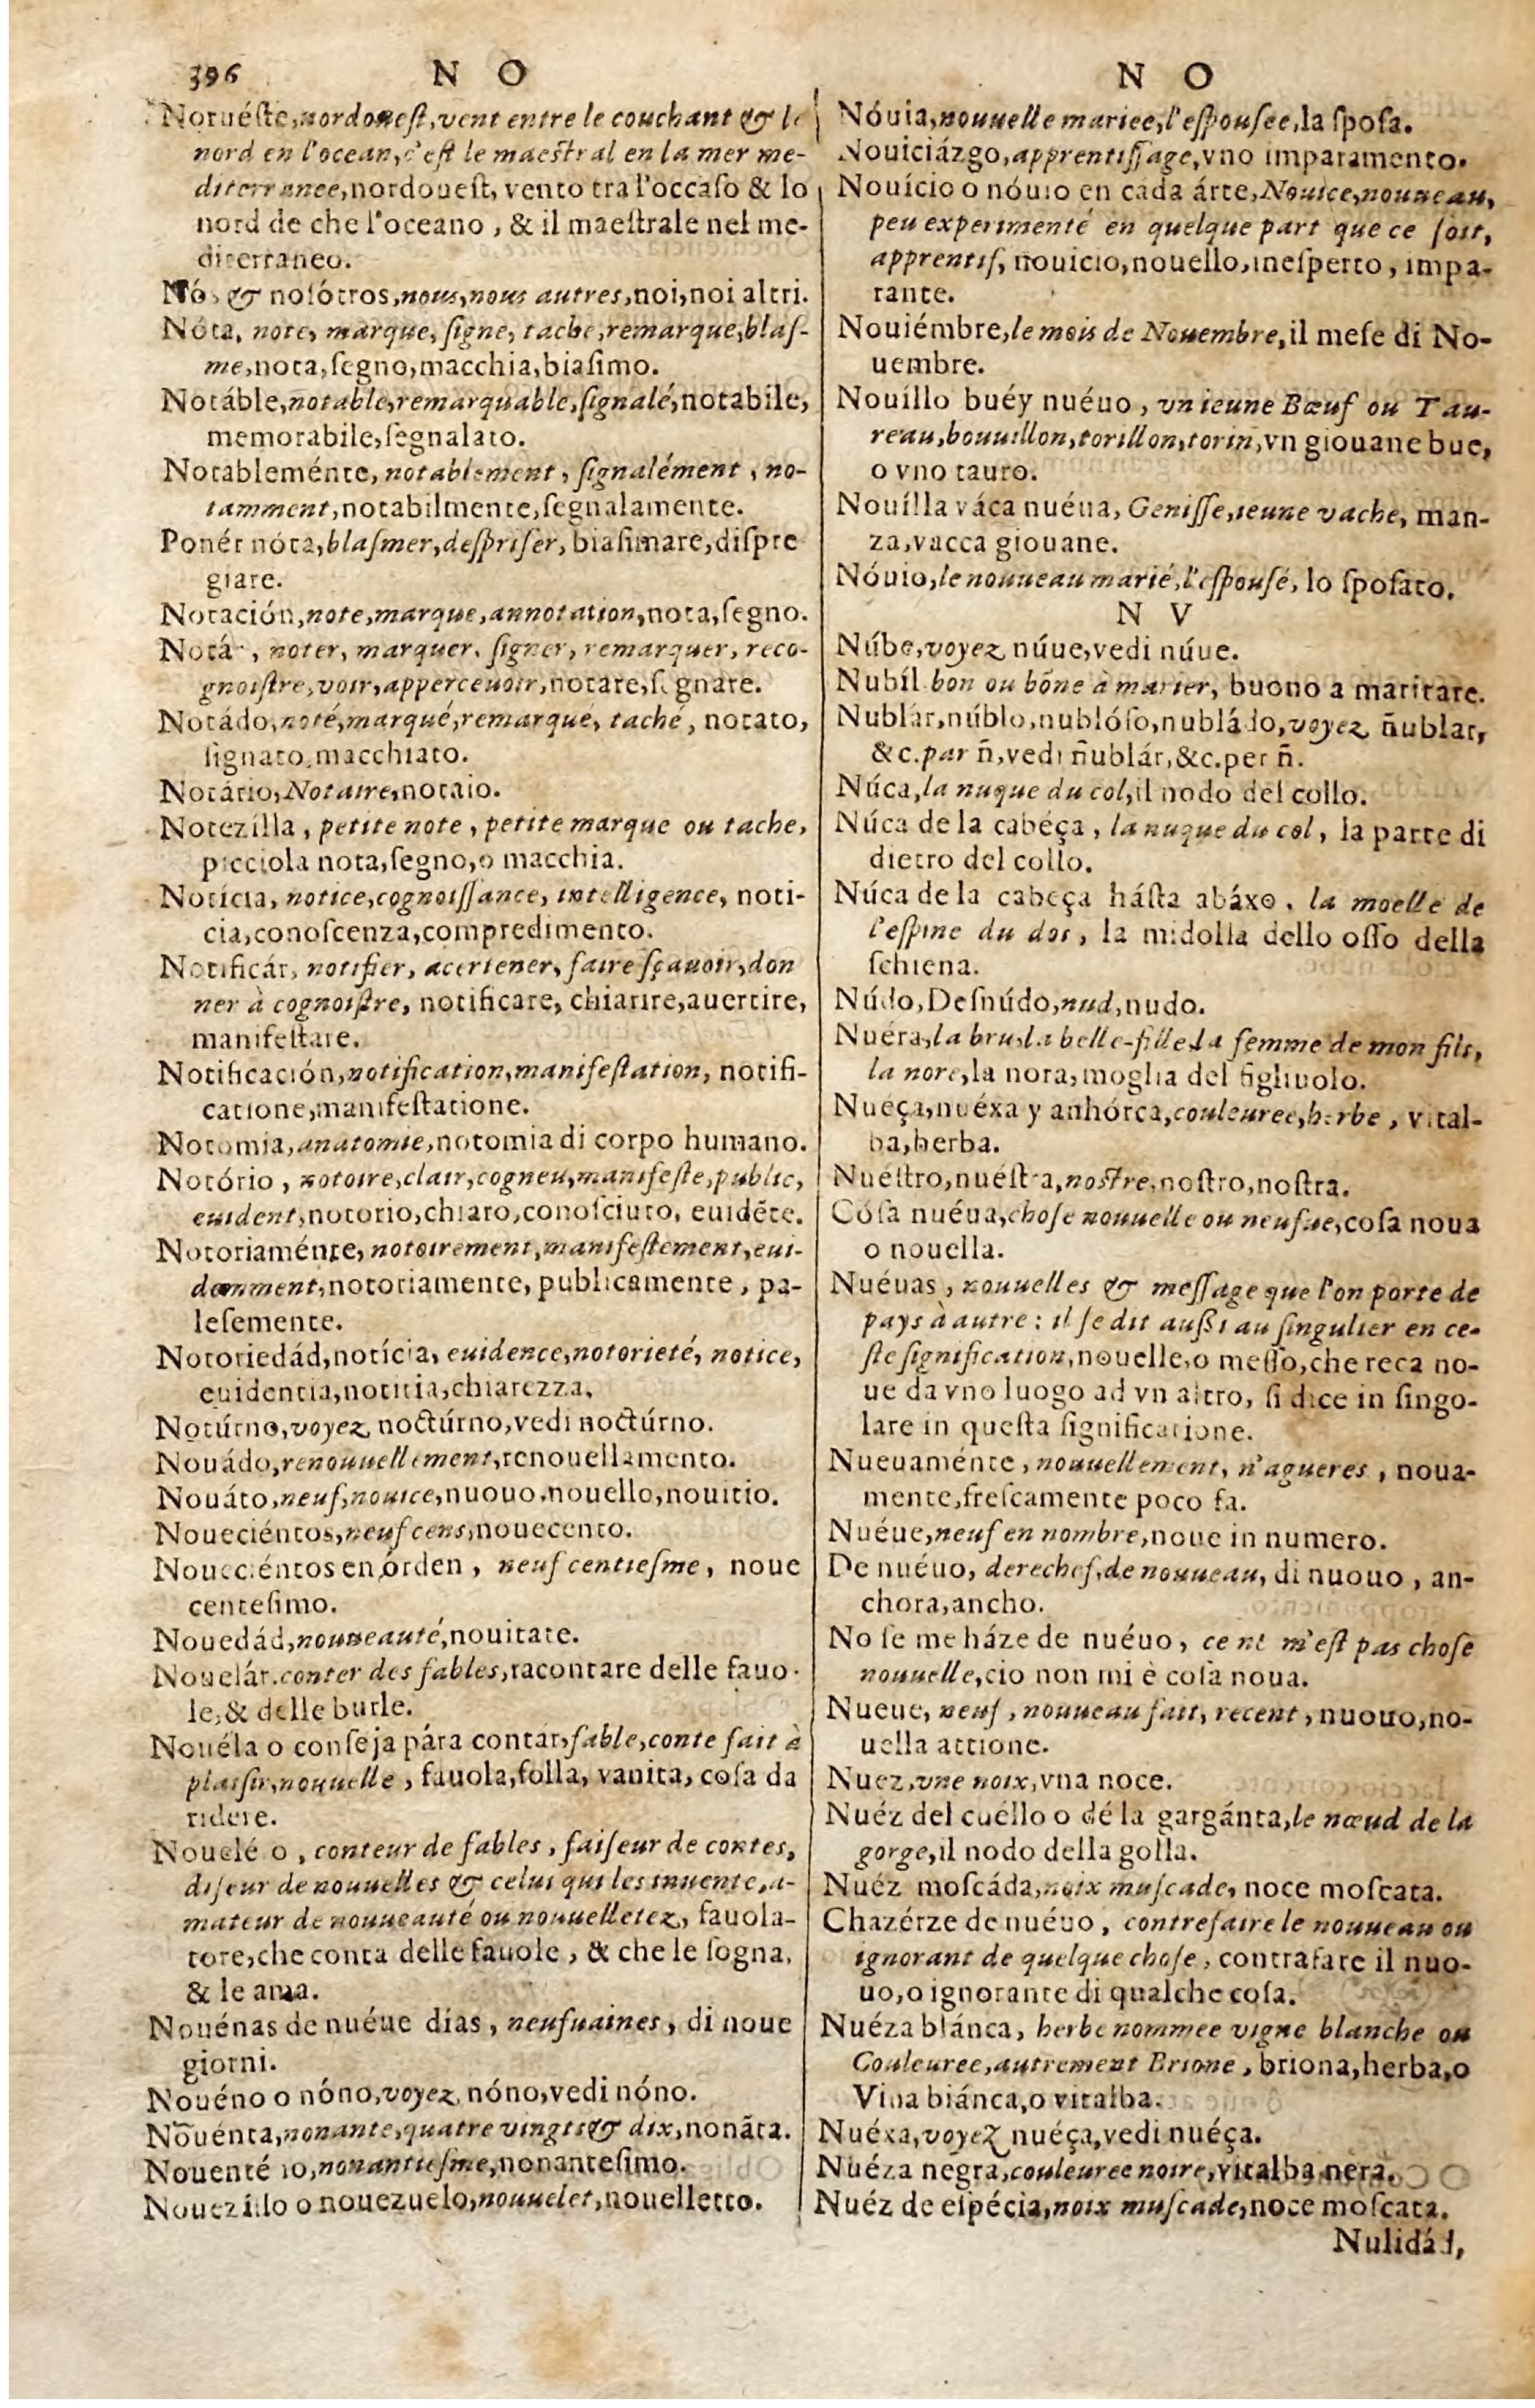 396 N O
Noruéſte, nordoueſt, vent entre le couchant & le
nord en l'ocean, c'eſt le maeſtral en la mer me-
diterranee, nordoueſt, vento tra l'occaſo & lo
nord de che l'oceano, & il maeſtrale nel me-
diterraneo.
Nós & noſótros, nous, nous autres, noi, noi altri.
Nóta, note, marque, ſigne, tache, remarque, blaſ-
me, nota, ſegno, macchia, biaſimo.
Notáble, notable, remarquable, ſignalé, notabile,
memorabile, ſegnalato.
Notableménte, notablement, ſignalément, no-
tamment, notabilmente, ſegnalamente.
Ponér nóta, blaſmer, deſpriſer, biaſimare, diſpre
giare.
Notación, note, marque, annotation, nota, ſegno.
Notár, noter, marquer, ſigner, remarquer, reco-
gnoiſtre, voir, apperceuoir, notare, ſegnare.
Notádo, noté, marqué, remarqué, taché, notato,
ſignato, macchiato.
Notário, Notaire, notaio.
Notezílla, petite note, petite marque ou tache,
picciola nota, ſegno, o macchia.
Notícia, notice, cognoiſſance, intelligence, noti-
cia, conoſcenza, compredimento.
Notificár, notifier, acertener, faire ſçauoir, don
ner à cognoiſtre, notificare, chiarire, auertire,
manifeſtare.
Notificación, notification, manifeſtation, notifi-
catione, manifeſtatione.
Notomia, anatomie, notomia di corpo humano.
Notório, notoire, clair, cogneu, manifeſte, public,
euident, notorio, chiaro, conoſciuto, euidẽte.
Notoriaménte, notoirement, manifeſtement, eui-
demment, notoriamente, publicamente, pa-
leſemente.
Notoriedád, notícia, euidence, notorieté, notice,
euidentia, notitia, chiarezza.
Notúrno, voyez noctúrno, vedi noctúrno.
Nouádo, renouuellement, renouellamento.
Nouáto, neuf, nouice, nuouo, nouello, nouitio.
Noueciéntos, neuf cens, nouecento.
Noueciéntos en órden, neuf centieſme, noue
centeſimo.
Nouedád, nouueauté, nouitate.
Nouelár, conter des fables, racontare delle fauo-
le, & delle burle.
Nouéla o conſeja pára contar, fable, conte fait à
plaiſir, nouuelle, fauola, folla, vanita, coſa da
ridere.
Nouelé o, conteur de fables, faiſeur de contes,
diſeur de nouuelles & celui qui les inuente, a-
mateur de nouueauté ou nouuelletez, fauola-
tore, che conta delle fauole, & che le ſogna,
& le ama.
Nouénas de nuéue días, neufuaines, di noue
giorni.
Nouéno o nóno, voyez nóno, vedi nóno.
Nouénta, nonante, quatre vingts & dix, nonãta.
Nouenté no, nonantieſme, nonanteſimo.
Nouezíllo o nouezuelo, nouuelet, nouelletto.
N O
Nóuia, nouuelle mariee, l'eſpouſee, la ſpoſa.
Nouiciázgo, apprentiſſage, vno imparamento.
Nouício o nóuio en cáda árte, Nouice, nouueau,
peu experimenté en quelque part que ce ſoit,
apprentif, nouicio, nouello, ineſperto, impa-
rante.
Nouiémbre, le mois de Nouembre, il meſe di No-
uembre.
Nouíllo buéy nuéuo, vn ieune Bœuf ou Tau-
reau, bouuillon, torillon, torin, vn giouane bue,
o vno tauro.
Nouílla váca nuéua, Geniſſe, ieune vache, man-
za, vacca giouane.
Nóuio, le nouueau marié, l'eſpouſé, lo ſpoſato.
N V
Núbe, voyez núue, vedi núue.
Nubíl bon ou bõne à marier, buono a maritare.
Nublár, núblo, nublóſo, nubládo, voyez ñublar,
&c. par ñ, vedi ñublár, &c. per ñ.
Núca, la nuque du col, il nodo del collo.
Núca de la cabéça, la nuque du col, la parte di
dietro del collo.
Núca de la cabeça háſta abáxo, la moelle de
l'eſpine du dos, la midolla dello oſſo della
ſchiena.
Núdo, Deſnúdo, nud, nudo.
Nuéra, la bru, la belle-fille, la femme de mon fils,
la nore, la nora, moglia del figliuolo.
Nuéça, nuéxa y anhórca, couleuree, herbe, vital-
ba, herba.
Nuéſtro, nuéſtra, noſtre, noſtro, noſtra.
Cóſa nuéua, choſe nouuelle ou neufue, coſa noua
o nouella.
Nuéuas, nouuelles & meſſage que l'on porte de
pays à autre: il ſe dit auſſi au ſingulier en ce-
ſte ſignification, nouelle, o meſſo, che reca no-
ue da vno luogo ad vn altro, ſi dice in ſingo-
lare in queſta ſignificatione.
Nueuaménte, nouuellement, n'agueres, noua-
mente, freſcamente poco fa.
Nuéue, neuf en nombre, noue in numero.
De nuéuo, derechef, de nouueau, di nuouo, an-
chora, ancho.
No ſe me háze de nuéuo, ce ne m'eſt pas choſe
nouuelle, cio non mi è coſa noua.
Nueue, neuf, nouueau fait, recent, nuouo, no-
uella attione.
Nuez, vne noix, vna noce.
Nuéz del cuéllo o dé la gargánta, le nœud de la
gorge, il nodo della golla.
Nuéz moſcáda, noix muſcade, noce moſcata.
Chazérze de nuéuo, contrefaire le nouueau ou
ignorant de quelque choſe, contrafare il nuo-
uo, o ignorante di qualche coſa.
Nuéza blánca, herbe nommee vigne blanche ou
Couleuree, autrement Brione, briona, herba, o
Vina biánca, o vitalba.
Nuéxa, voyez nuéça, vedi nuéça.
Nuéza negra, couleuree noire, vitalba nera.
Nuéz de eſpécia, noix muſcade, noce moſcata.
Nulidád,